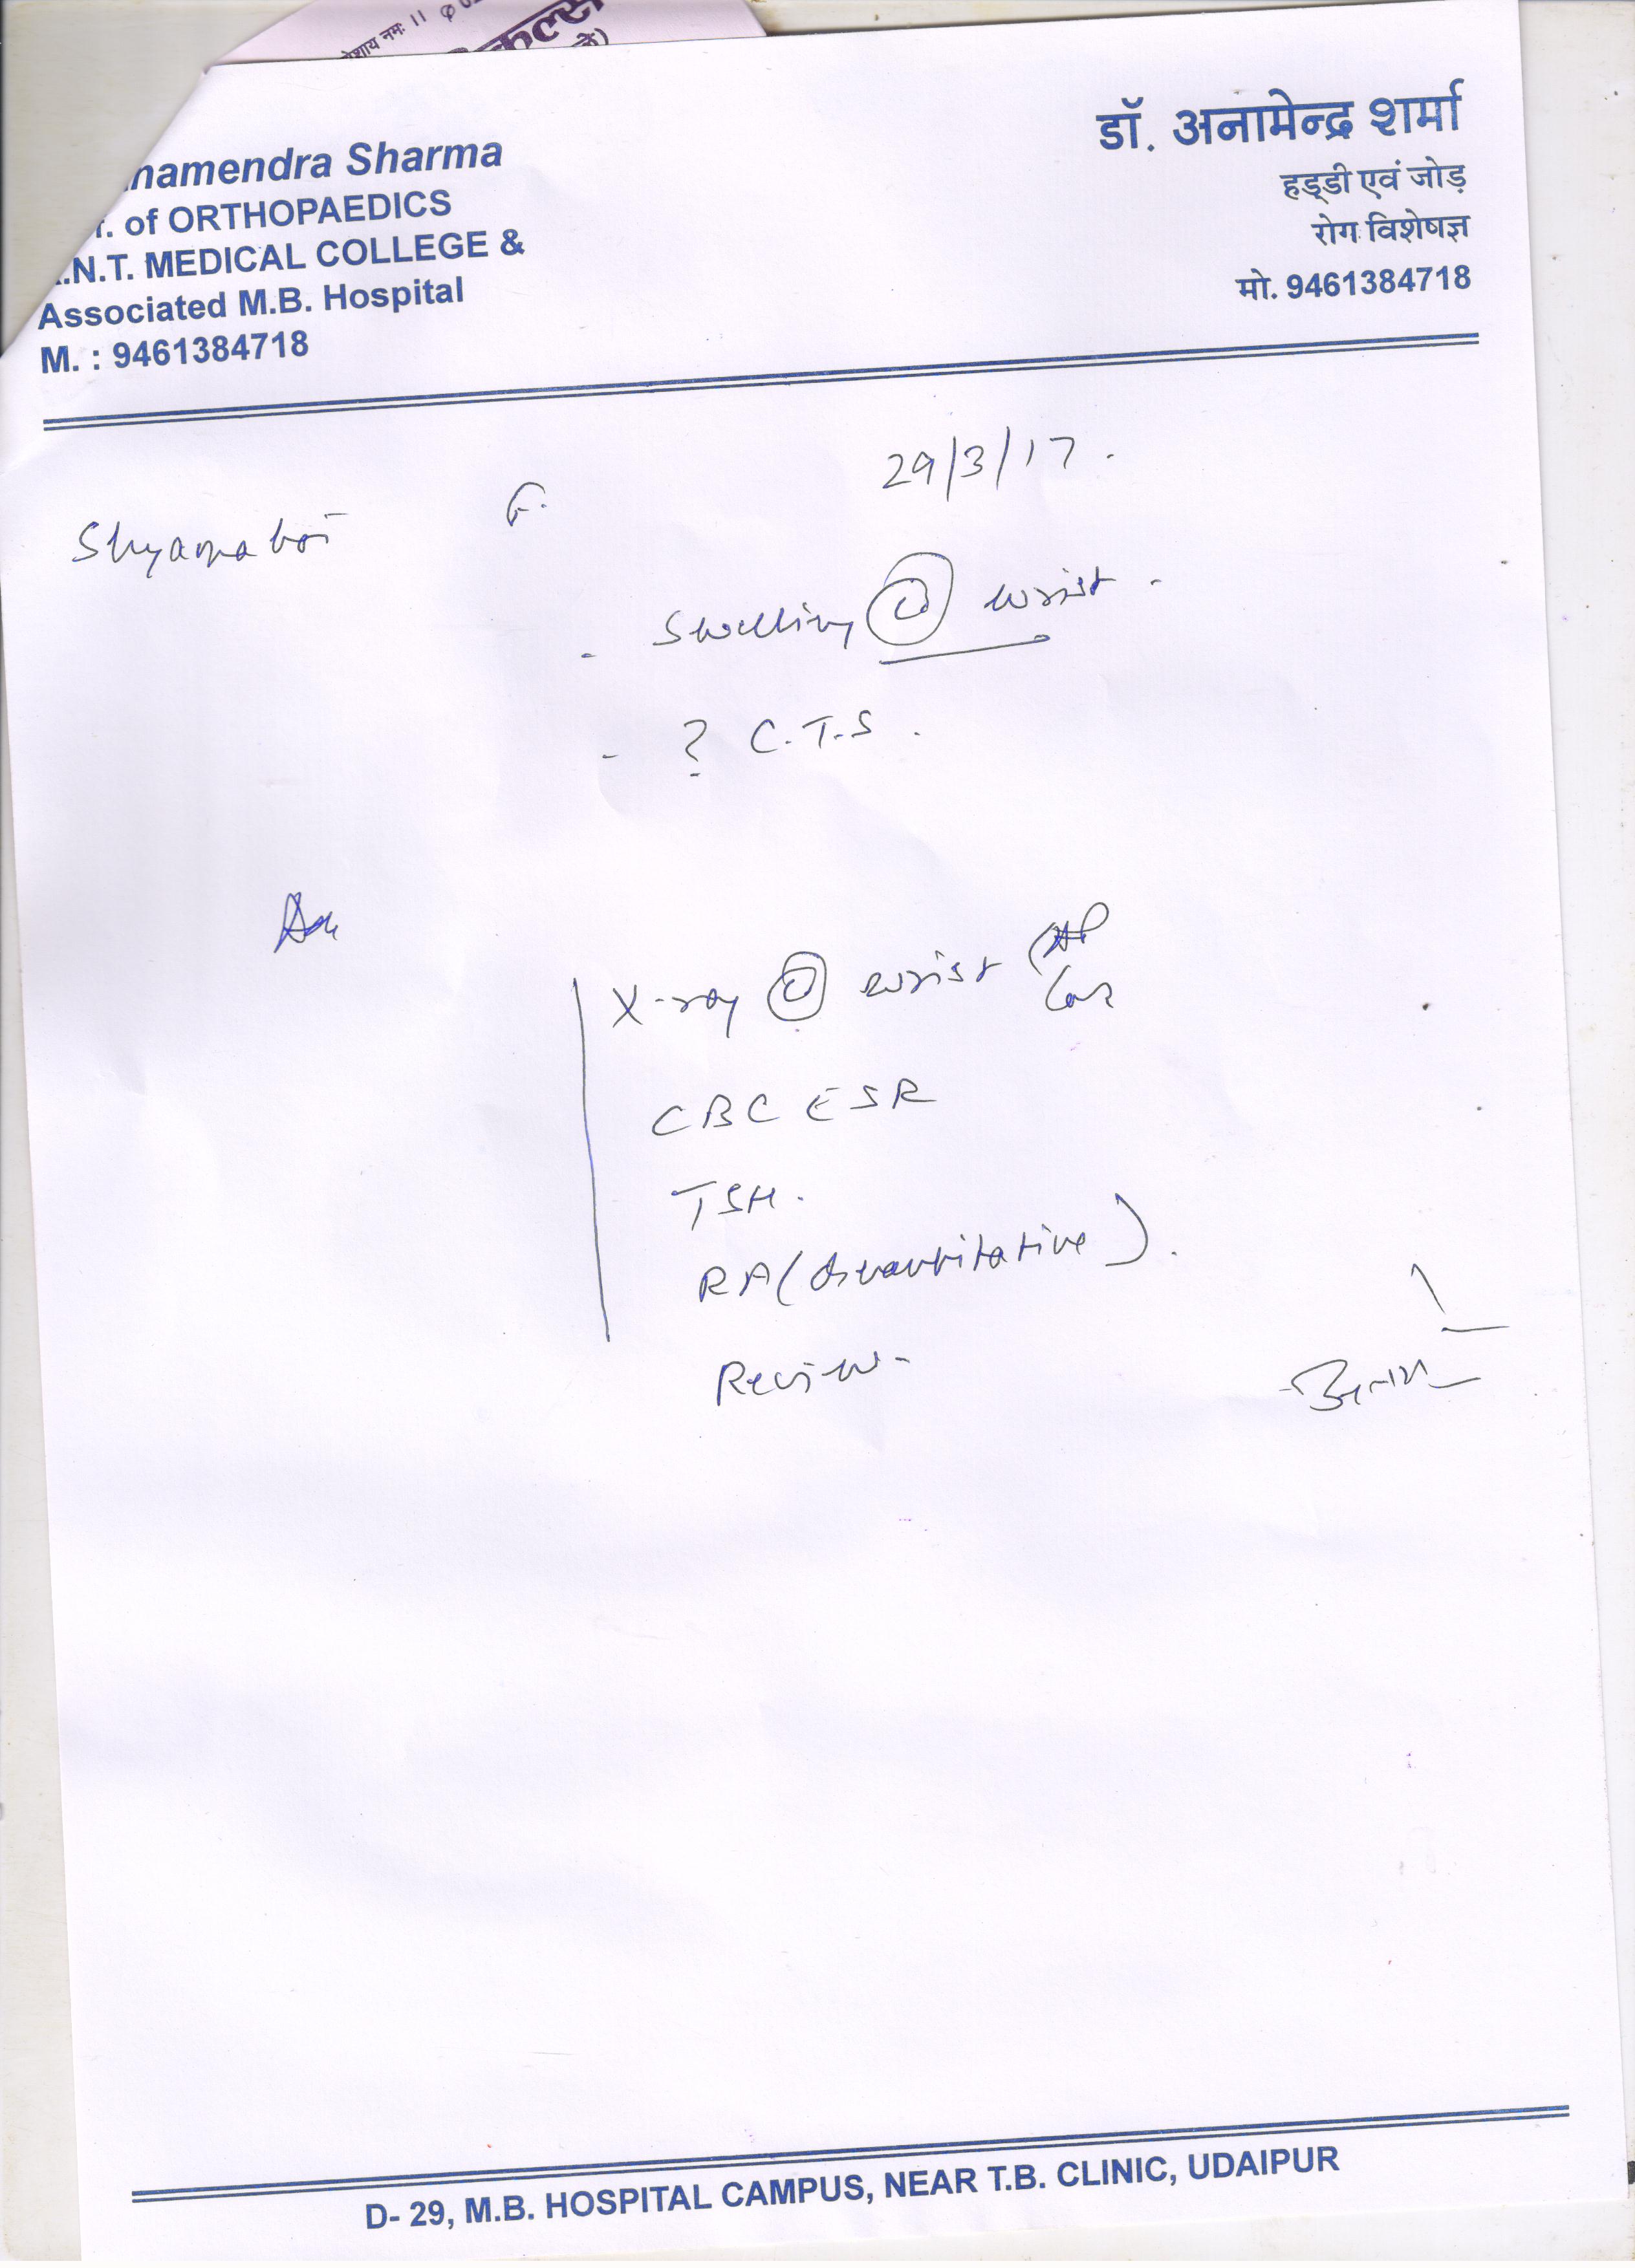 नमः ॥
namendra Sharma
of ORTHOPAEDICS
.N.T. MEDICAL COLLEGE &
Associated M.B. Hospital
M. : 9461384718
डॉ. अनामेन्द्र शर्मा
हड्डी एवं जोड़
रोग विशेषज्ञ
मो. 9461384718
29/3/17.
Shyamabai F.
- Swelling Ⓛ wrist.
- ? C.T.S.
X-ray Ⓛ wrist (AP
Lat
CBC ESR
TSH.
RA (Quantitative).
Review-
D- 29, M.B. HOSPITAL CAMPUS, NEAR T.B. CLINIC, UDAIPUR